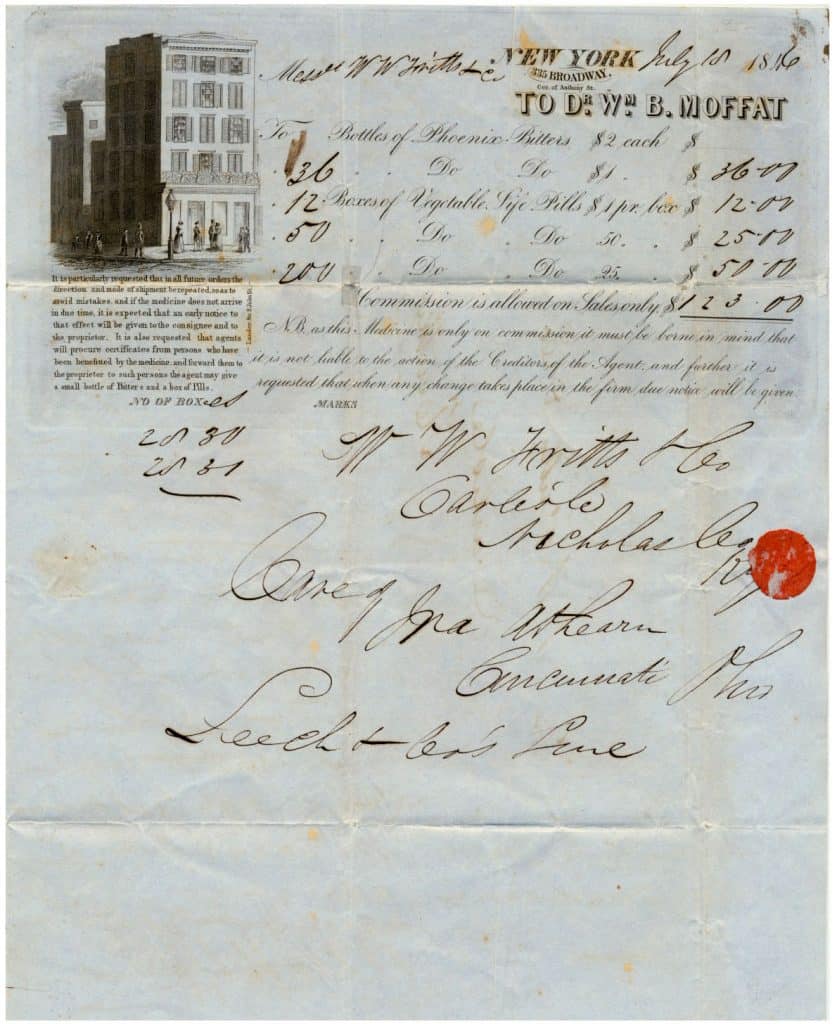 NEW YORK July 18 1846
335 BROADWAY,
Cor. of Anthony St.
Messrs W W Fritts & Co
TO DR. WM B. MOFFAT
To Bottles of Phoenix Bitters $2 each $
36 Do Do $1. $ 36.00
12 Boxes of Vegetable Life Pills $1 pr. box $ 12.00
50 Do Do 50. $ 25.00
200 Do Do 25. $ 50.00
Commission is allowed on Sales only, $123.00
N.B. as this Medicine is only on commission it must be borne in mind that
it is not liable to the action of the Creditors of the Agent, and further it is
requested that when any change takes place in the firm due notice will be given.
It is particularly requested that in all future orders the
direction and mode of shipment be repeated, so as to
avoid mistakes, and if the medicine does not arrive
in due time, it is expected that an early notice to
that effect will be given to the consignee and to
the proprietor. It is also requested that agents
will procure certificates from persons who have
been benefitted by the medicine, and forward them to
the proprietor to such persons the agent may give
a small bottle of Bitters and a box of Pills.
NO OF BOXes
MARKS
2830
2831
W W Fritts & Co
Carlisle
Nicholas Co
Ky
Care of
Ira Athearn
Cincinnati Ohio
Leech & Co's Line